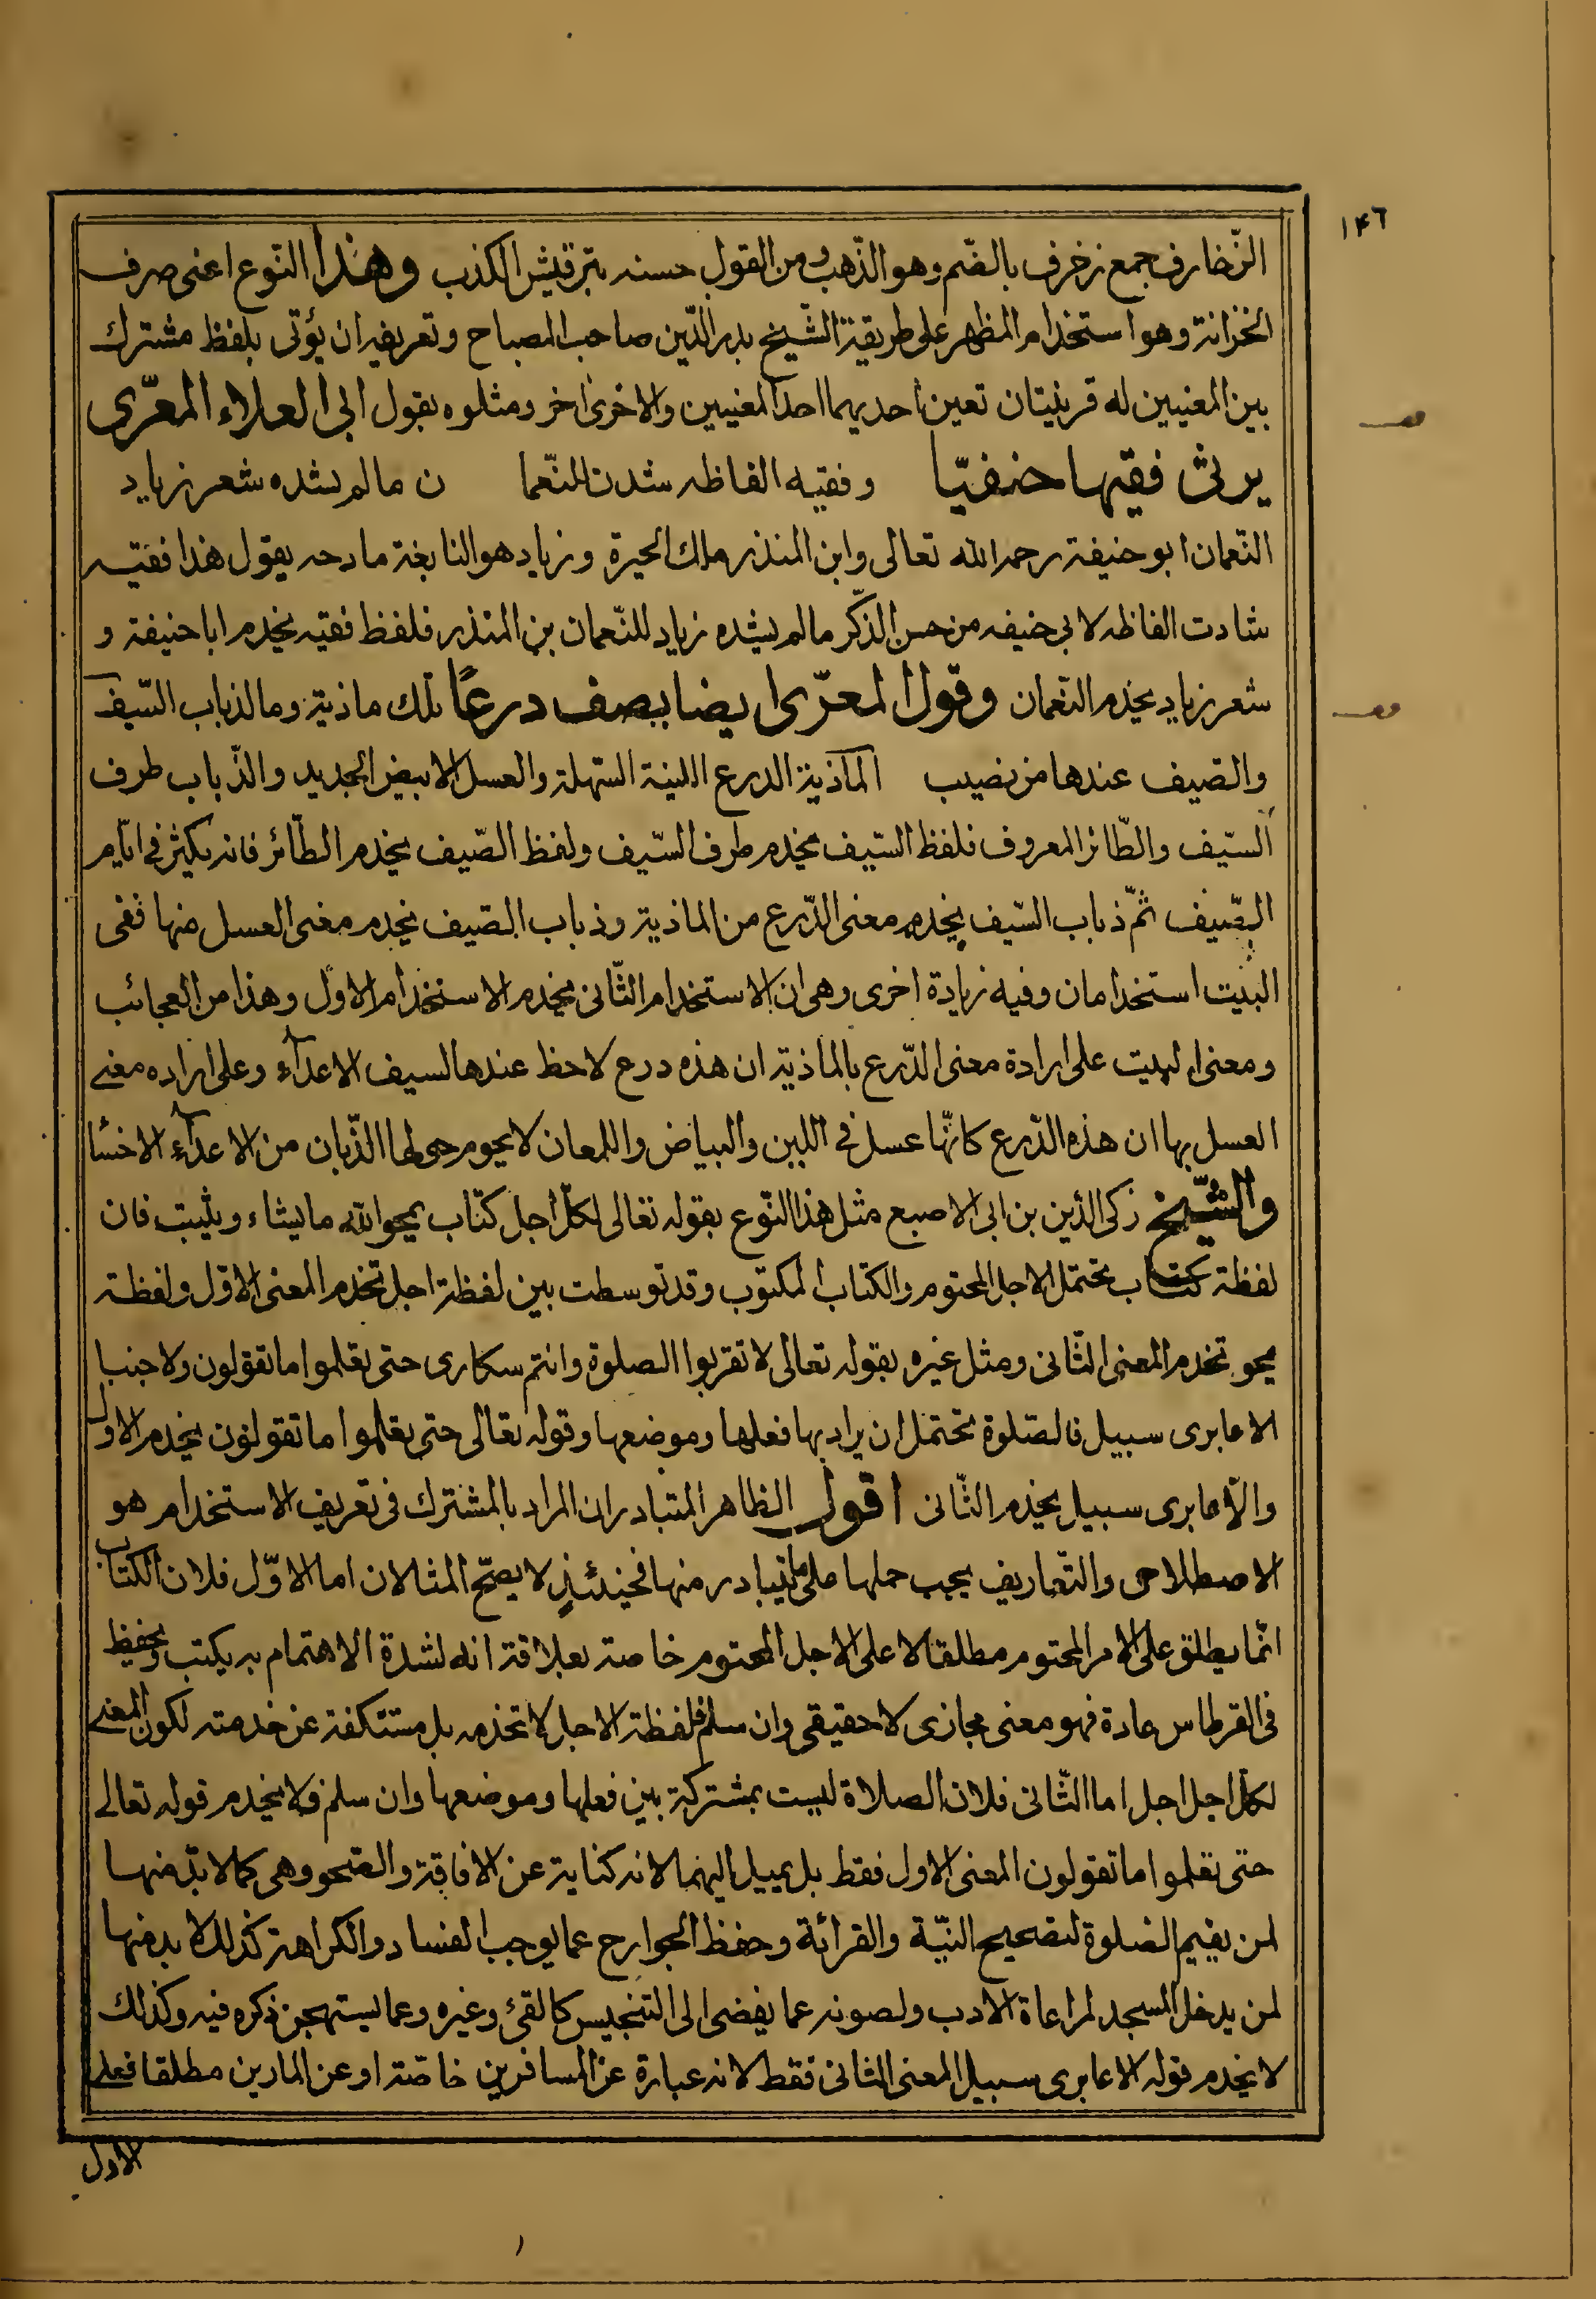 ١٤٦
الزّخارف جمع زخرف بالضّم وهو الذّهب ومن القول حسنه بترقيش الكذب وهذا النّوع اعنى صرف
الخزانة وهو استخدام المظهر على طريقة الشّيخ بدر الدّين صاحب المصباح وتعريفه ان يؤتى بلفظ مشترك
بين المعنيين له قرينتان تعين احديهما احد المعنيين والاخرى اخر ومثلوه بقول ابى العلاء المعرّى
يرثى فقيها حنفيّا وفقيه الفاظه شدن للنّعما ن مالم يشده شعر زياد
النّعمان ابو حنيفة رحمه الله تعالى وابن المنذر ملك الحيرة وزياد هو النابغة مادحه يقول هذا فقيه
شادت الفاظه لابى حنيفه من حسن الذّكر مالم يشده زياد للنّعمان بن المنذر فلفظ فقيه يخدم ابا حنيفة و
شعر زياد يخدم النّعمان وقول المعرّى ايضا يصف درعًا تلك ماذيّة وما لذباب السّيف
والصّيف عندها من نصيب الماذيّة الدرع اللينة السّهلة والعسل الابيض الجديد والذّباب طرف
السّيف والطّائر المعروف فلفظ السّيف يخدم طرف السّيف ولفظ الصّيف يخدم الطّائر فانه يكثر فى ايّام
الصّيف ثمّ ذباب السّيف يخدم معنى الدّرع من الماذية وذباب الصّيف يخدم معنى العسل منها ففى
البيت استخدامان وفيه زيادة اخرى وهى ان الاستخدام الثّانى يخدم الاستخدام الاول وهذا من العجائب
ومعنى البيت على ارادة معنى الدّرع بالماذية ان هذه درع لاحظ عندها لسيف الاعدآء وعلى اراده معنى
العسل بها ان هذه الدّرع كانّها عسل فى اللين والبياض واللمعان لا يحوم حولها الذّبان من الاعدآء الاخسّا
والشّيخ زكى الدّين بن ابى الاصبع مثل هذا النّوع بقوله تعالى لكلّ اجل كتاب يمحو الله ما يشاء ويثبت فان
لفظة كتاب تحتمل الاجل المحتوم والكتاب المكتوب وقد توسطت بين لفظة اجل تخدم المعنى الاوّل ولفظة
يمحو تخدم المعنى الثّانى ومثل غيره بقوله تعالى لا تقربوا الصلوة وانتم سكارى حتى تعلموا ما تقولون ولا جنبا
الا عابرى سبيل فالصّلوة تحتمل ان يراد بها فعلها وموضعها وقوله تعالى حتى تعلموا ما تقولون يخدم الاول
والّا عابرى سبيل يخدم الثّانى اقول الظاهر المتبادر ان المراد بالمشترك فى تعريف الاستخدام هو
الاصطلاحى والتّعاريف يجب حملها على ما يتبادر منها فحينئذٍ لا يصحّ المثالان اما الاوّل فلان الكتاب
انّما يطلق على الامر المحتوم مطلقا لا على الاجل المحتوم خاصة بعلاقة انه لشدة الاهتمام به يكتب ويحفظ
فى القرطاس عادة فهو معنى مجازى لا حقيقى وان سلم فلفظة الاجل لا تخدمه بل مستنكفة عن خدمته لكون المعنى
لكل اجل اجل اما الثّانى فلان الصلاة ليست بمشتركة بين فعلها وموضعها وان سلم فلا يخدم قوله تعالى
حتى تعلموا ما تقولون المعنى الاول فقط بل يميل اليهما لانه كناية عن الافاقة والصّحو وهى كما لا بدّ منها
لمن يقيم الصّلوة لتصحيح النيّة والقرائة وحفظ الجوارح عما يوجب الفساد والكراهة كذلك لا بد منها
لمن يدخل المسجد لمراعاة الادب ولصونه عما يفضى الى التنجيس كالقئ وغيره وعما يستهجن ذكره فيه وكذلك
لا يخدم قوله الا عابرى سبيل المعنى الثانى فقط لانه عبارة عن المسافرين خاصّة او عن المارين مطلقا فعلى
الاول